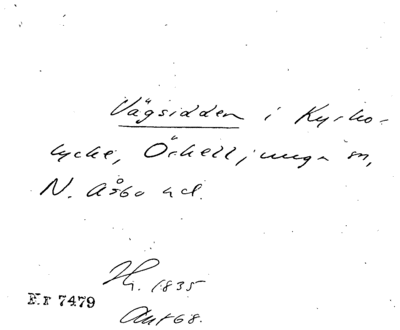 Vägsidden i Kyrko-
lycke, Örkelljunga sn,
N. Åsbo hd.
1835
E.r 7479
68.